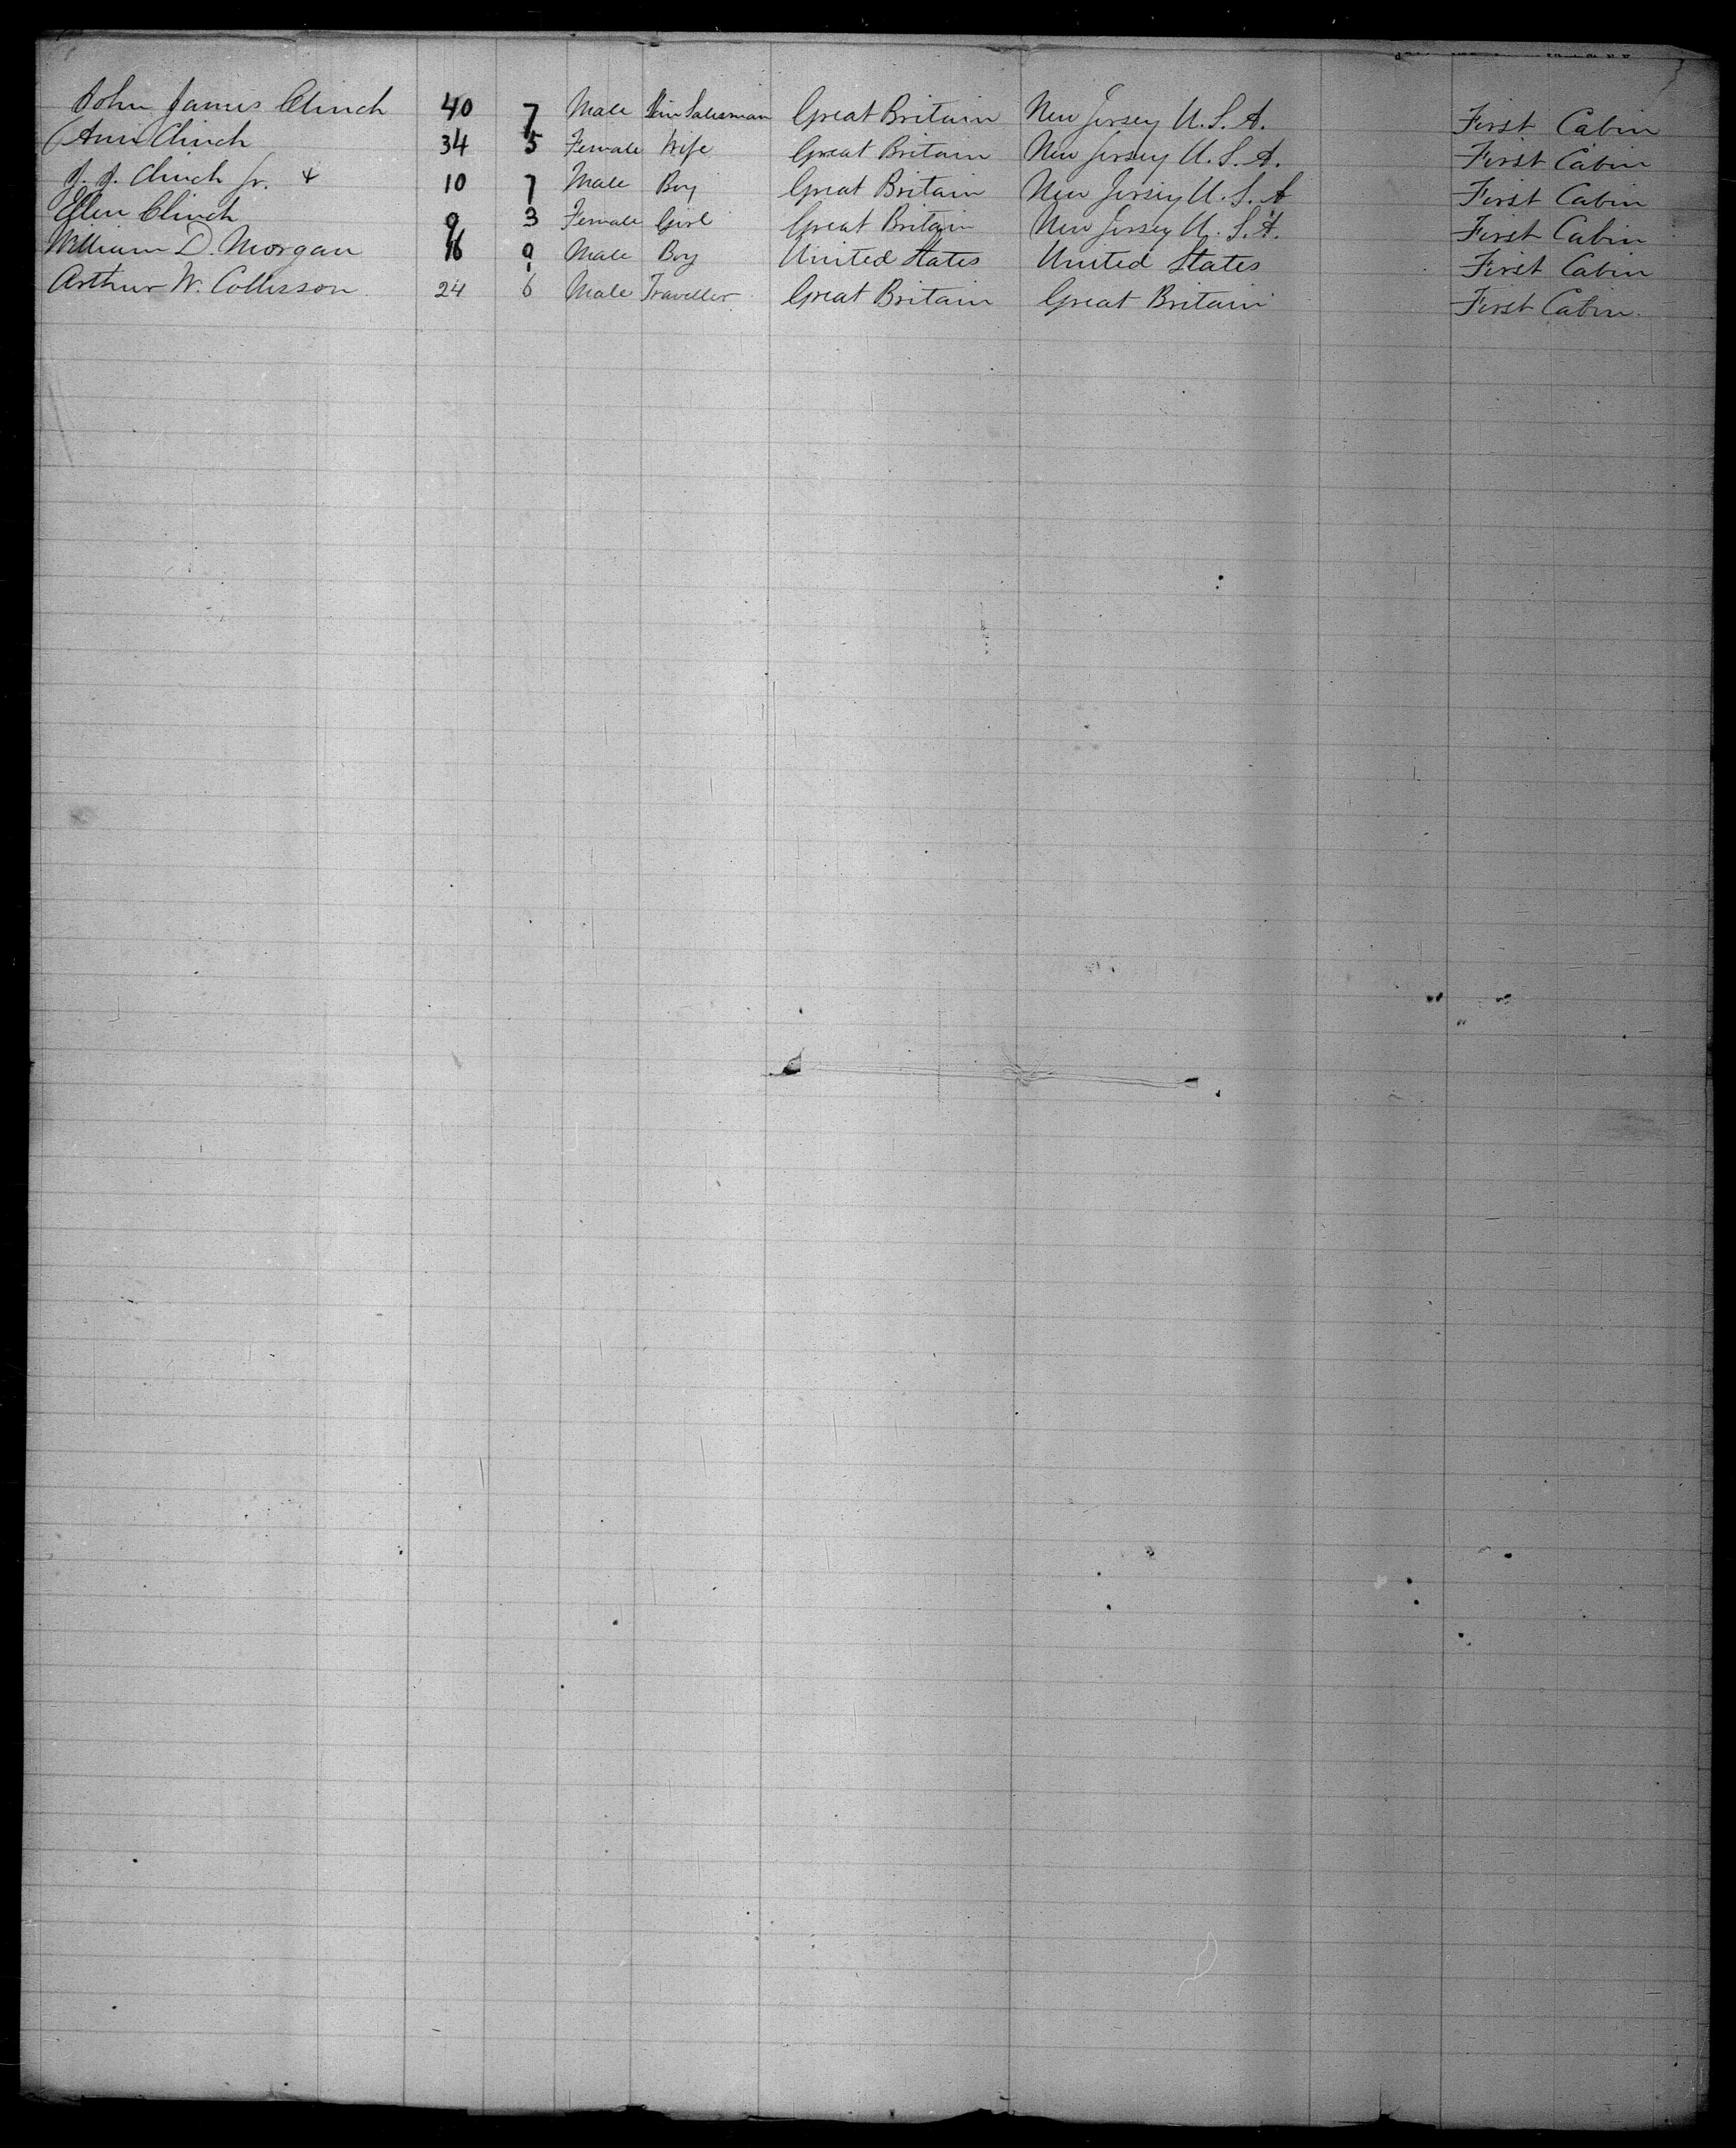 John James Clinch 40 7 Male Salesman Great Britain New Jersey U.S.A. First Cabin
Ann Clinch 34 5 Female Wife Great Britain New Jersey U.S.A. First Cabin
J. J. Clinch Jr. 10 7 Male Boy Great Britain New Jersey U.S.A First Cabin
Ellen Clinch 9 3 Female Girl Great Britain New Jersey U.S.A. First Cabin
William D. Morgan 16 9 Male Boy United States United States First Cabin
Arthur W. Collisson 24 6 Male Traveller Great Britain Great Britain First Cabin.